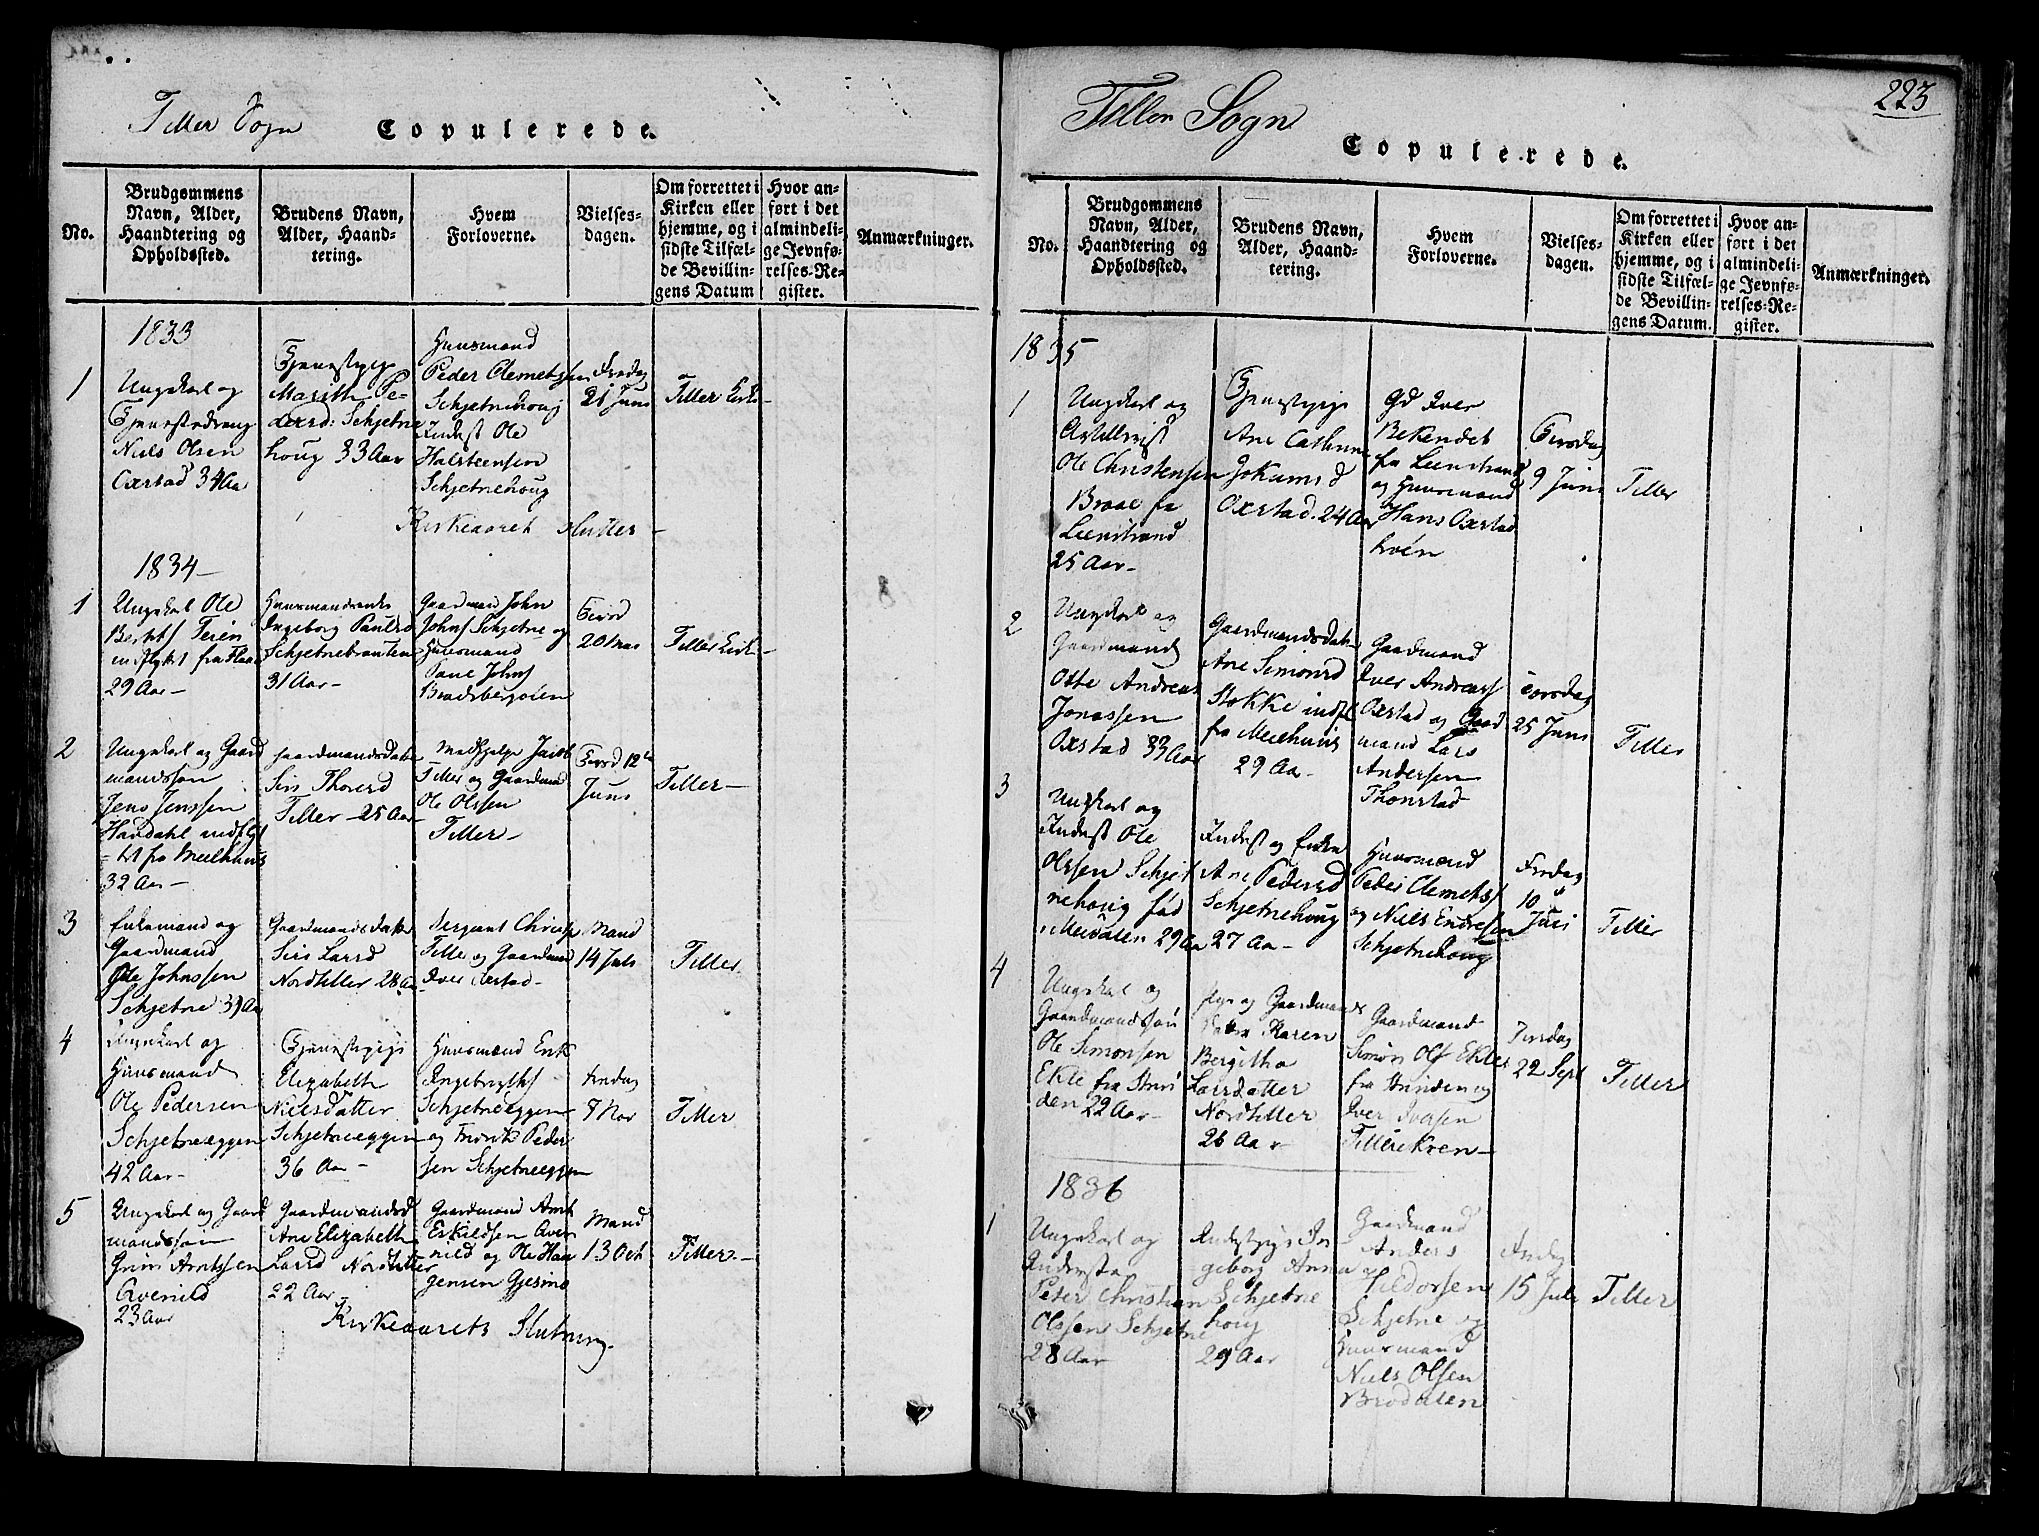 Tiller Sogn
Copulerede.
No.
Brudgommens
Navn, Alder,
Haandtering og
Opholdssted.
Brudens Navn,
Alder, Haand-
tering.
Hvem
Forloverne.
Vielses-
dagen.
Om forrettet i
Kirken eller
hjemme, og i
sidste Tilfæl-
de Bevillin-
gens Datum
Hvor an-
ført i det
almindeli-
ge Jevnfø-
relses-Re-
gister.
Anmærkninger.
1833
1
Ungekarl og
Tjenestedreng
Niels Olsen
Oxstad 34 Aar
Tjenestepige
Marith Pe-
dersd: Schjetne
houg 33 Aar
Huusmand
Peder Clemetsen
Schjetnehoug
Inderst Ole
Halsteensen
Schjetnehoug
Fredag
21 Juni
Tiller Kirke
Kirkeaaret slutter
1834
1
Ungekarl Ole
Berets Teien
indflyttet fra Flaa
29 Aar
Ingeborg Paulsd
Schjetnebrauten
31 Aar
Gaardmand John
Johns Schjetne og
Huusmand
Pane Johns
Bradsbergøien
Torsd
20 Mars
Tiller Kirke
2
Ungekarl og Gaard
mandssøn
Jens Jenssen
Handahl indflyt
tet fra Meelhuus
32 Aar
Gaardmandsdatter
Siri Thoresd
Tiller 25 Aar
Medhjelper Jacob
Tiller og Gaardmand
Ole Olssen
Tiller
Torsd 12te
Juni
Tiller
3
Enkemand og
Gaardmand
Ole Johnssen
Schjetne 39 Aar
Gaardmands datter
Siri Larsd
Nordtiller 28 Aar
Sergeant Christ
Tiller og Gaardmand
Iver Oxstad
Mand
14 Juli
Tiller
4
Ungekarl og
Huusmand
Ole Pedersen
Schjetneeggen
42 Aar
Tjenestepige
Elizabeth
Nielsdatter
Schjetneeggen
36 Aar
Huusmænd Erik
Ingebrigts
Schjetneeggen
og Fredrik Peder
sen Schjetneeggen
7 Nov
Tiller
5
Ungekarl og Gaard
mandssøn
Arntssen
Qvenild
23 Aar
Gaardmandsd
Ane Elizabeth
Larsd Nordtiller
22 Aar
Gaardmand Arnt
Eskildsen Qve
nild og Ole Haa
gensen Gjesmo
Mand
13 Octb
Tiller
Kirkeaarets Slutning
223
Tiller Sogn
Copulerede.
No.
Brudgommens
Navn, Alder,
Haandtering og
Opholdssted.
Brudens Navn,
Alder, Haand-
tering.
Hvem
Forloverne.
Vielses-
dagen.
Om forrettet i
Kirken eller
hjemme, og i
sidste Tilfæl-
de Bevillin-
gens Datum.
Hvor an-
ført i det
almindeli-
ge Jevnfø-
relses-Re-
gister.
Anmærkninger.
1835
1
Ungekarl og
Artillerist
Ole Christensen
Braae fra
Leenstrand
25 Aar
Tjenestepige
Ane Cathrine
Jokumsd
Oxstad. 24 Aar
Gd Iver
Bekendet
fra Leenstrand
og Huusmand
Hans Oxstad
Torsdag
9 Juni
Tiller
2
Ungekarl og
Gaardmand
Otte Andreas
Jonassen
Oxstad 33 Aar
Gaardmandsdatter
Ane Simonsd
Stokke indfl
fra Meelhuus
29 Aar
Gaardmand
Iver Andreas
Oxstad og Gaard
mand Lars
Andersen
Thonstad
Torsdag
25 Juni
Tiller
3
Ungekarl og
Inderst Ole
Olssen Schjet
nehoug fød
i Meldalen 29 Aar
Inderst og Enke
Ane Pedersd
Schjetnehoug
27 Aar
Huusmænd
Peder Clemets
og Niels Endresen
Schjetnehoug
Fredag
10
Juli
Tiller
4
Ungekarl og
Gaardmandssøn
Ole Simonsen
Ekle fra Strin
den 22 Aar
Pige og Gaardmands
datter Karen
Bergitha
Larsdatter
Nordtiller
26 Aar
Gaardmand
Simon Ols Ekle
fra Strinden og
Iver Iversen
Tillerekren
Tirsdag
22 Sept
Tiller
1836
1
Ungekarl og
Inderst
Peter Christian
Olssen Schjetne
28 Aar
Inderstpige In
geborg Anna
Schjetne
houg
29 Aar
Gaardmand
Anders
Schjetne og
Huusmand
Niels Olsen
Brodalen
15 Juli
Tiller